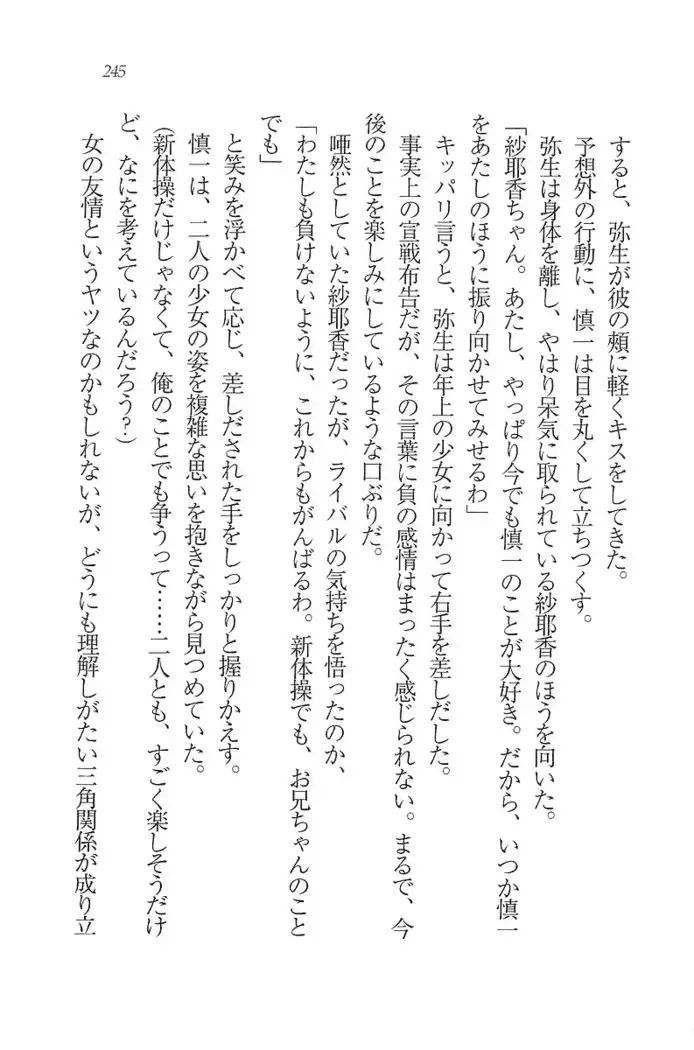 245
すると、弥生が彼の頰に軽くキスをしてきた。
予想外の行動に、慎一は目を丸くして立ちつくす。
弥生は身体を離し、やはり呆気に取られている紗耶香のほうを向いた。
「紗耶香ちゃん。あたし、やっぱり今でも慎一のことが大好き。だから、いつか慎一
をあたしのほうに振り向かせてみせるわ」
キッパリ言うと、弥生は年上の少女に向かって右手を差しだした。
事実上の宣戦布告だが、その言葉に負の感情はまったく感じられない。まるで、今
後のことを楽しみにしているような口ぶりだ。
唖然としていた紗耶香だったが、ライバルの気持ちを悟ったのか、
「わたしも負けないように、これからもがんばるわ。新体操でも、お兄ちゃんのこと
でも」
と笑みを浮かべて応じ、差しだされた手をしっかりと握りかえす。
慎一は、二人の少女の姿を複雑な思いを抱きながら見つめていた。
（新体操だけじゃなくて、俺のことでも争うって……二人とも、すごく楽しそうだけ
ど、なにを考えているんだろう？）
女の友情というヤツなのかもしれないが、どうにも理解しがたい三角関係が成り立